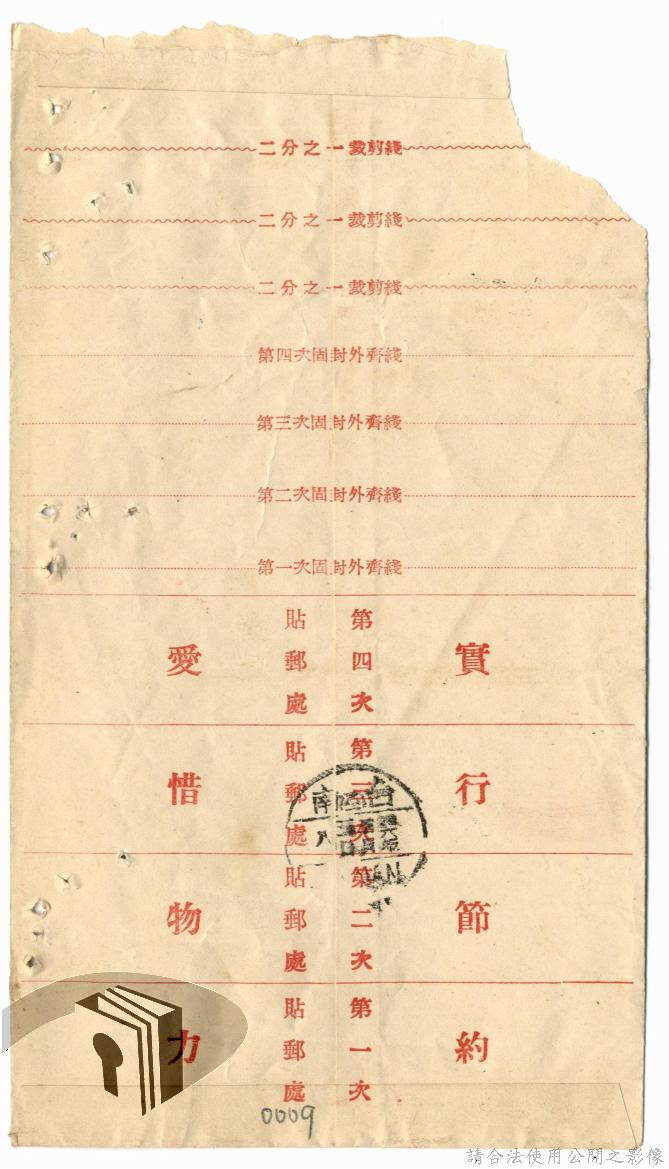 二分之一裁剪綫
二分之一裁剪綫
二分之一裁剪綫
第四次固封外齊綫
第三次固封外齊綫
第二次固封外齊綫
第一次固封外齊綫
實行節約
第四次
貼郵處
第三次
貼郵處
第二次
貼郵處
第一次
貼郵處
愛惜物力
0009
請合法使用公開之影像